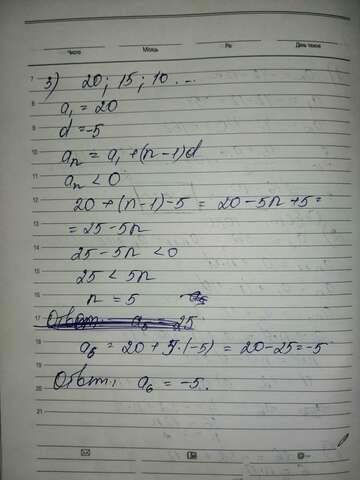 Число Месяц Год День недели
7 3) 20; 15; 10...
8 a₁ = 20
9 d = -5
10 aₙ = a₁ + (n-1)d
11 aₙ < 0
12 20 + (n-1)-5 = 20 - 5n + 5 =
13 = 25 - 5n
14 25 - 5n < 0
15 25 < 5n
16 n = 5
17 Ответ: a₅ = 25
18 a₆ = 20 + 5·(-5) = 20-25=-5
19
20 Ответ: a₆ = -5.
21